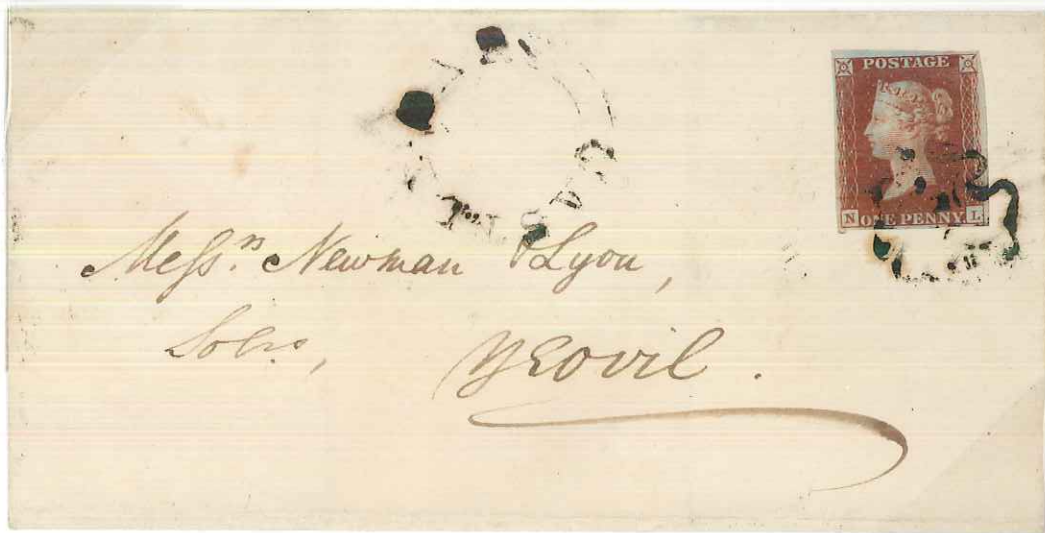 POSTAGE
N ONE PENNY L
Messrs. Newman & Lyon,
Solrs,
Yeovil.